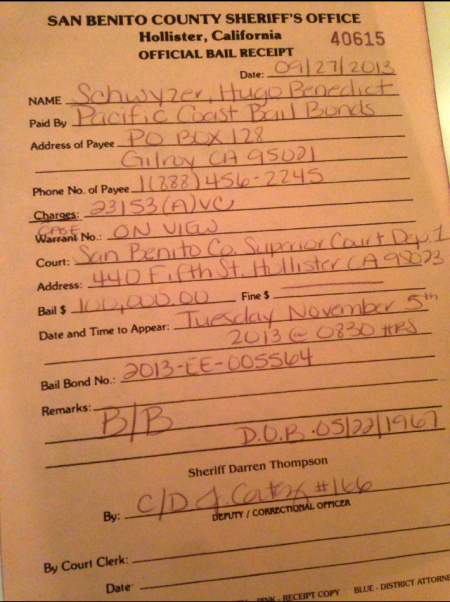 SAN BENITO COUNTY SHERIFF'S OFFICE
Hollister, California 40615
OFFICIAL BAIL RECEIPT
Date: 09/27/2013
NAME Schwyzer, Hugo Benedict
Paid By Pacific Coast Bail Bonds
Address of Payee PO BOX 128
Gilroy CA 95021
Phone No. of Payee 1(888) 456-2245
Charges: 23153(A)VC
CASE
Warrant No.: ON VIEW
Court: San Benito Co. Superior Court Dep. 1
Address: 440 Fifth St. Hollister CA 95023
Bail $ 100,000.00 Fine $
Date and Time to Appear: Tuesday November 5th
2013 @ 0830 HRS
Bail Bond No.: 2013-EE-005564
Remarks:
B/B
D.O.B. 05/22/1967
Sheriff Darren Thompson
By: C/D. J. #166
DEPUTY / CORRECTIONAL OFFICER
By Court Clerk:
Date:
PINK - RECEIPT COPY BLUE - DISTRICT ATTORNE